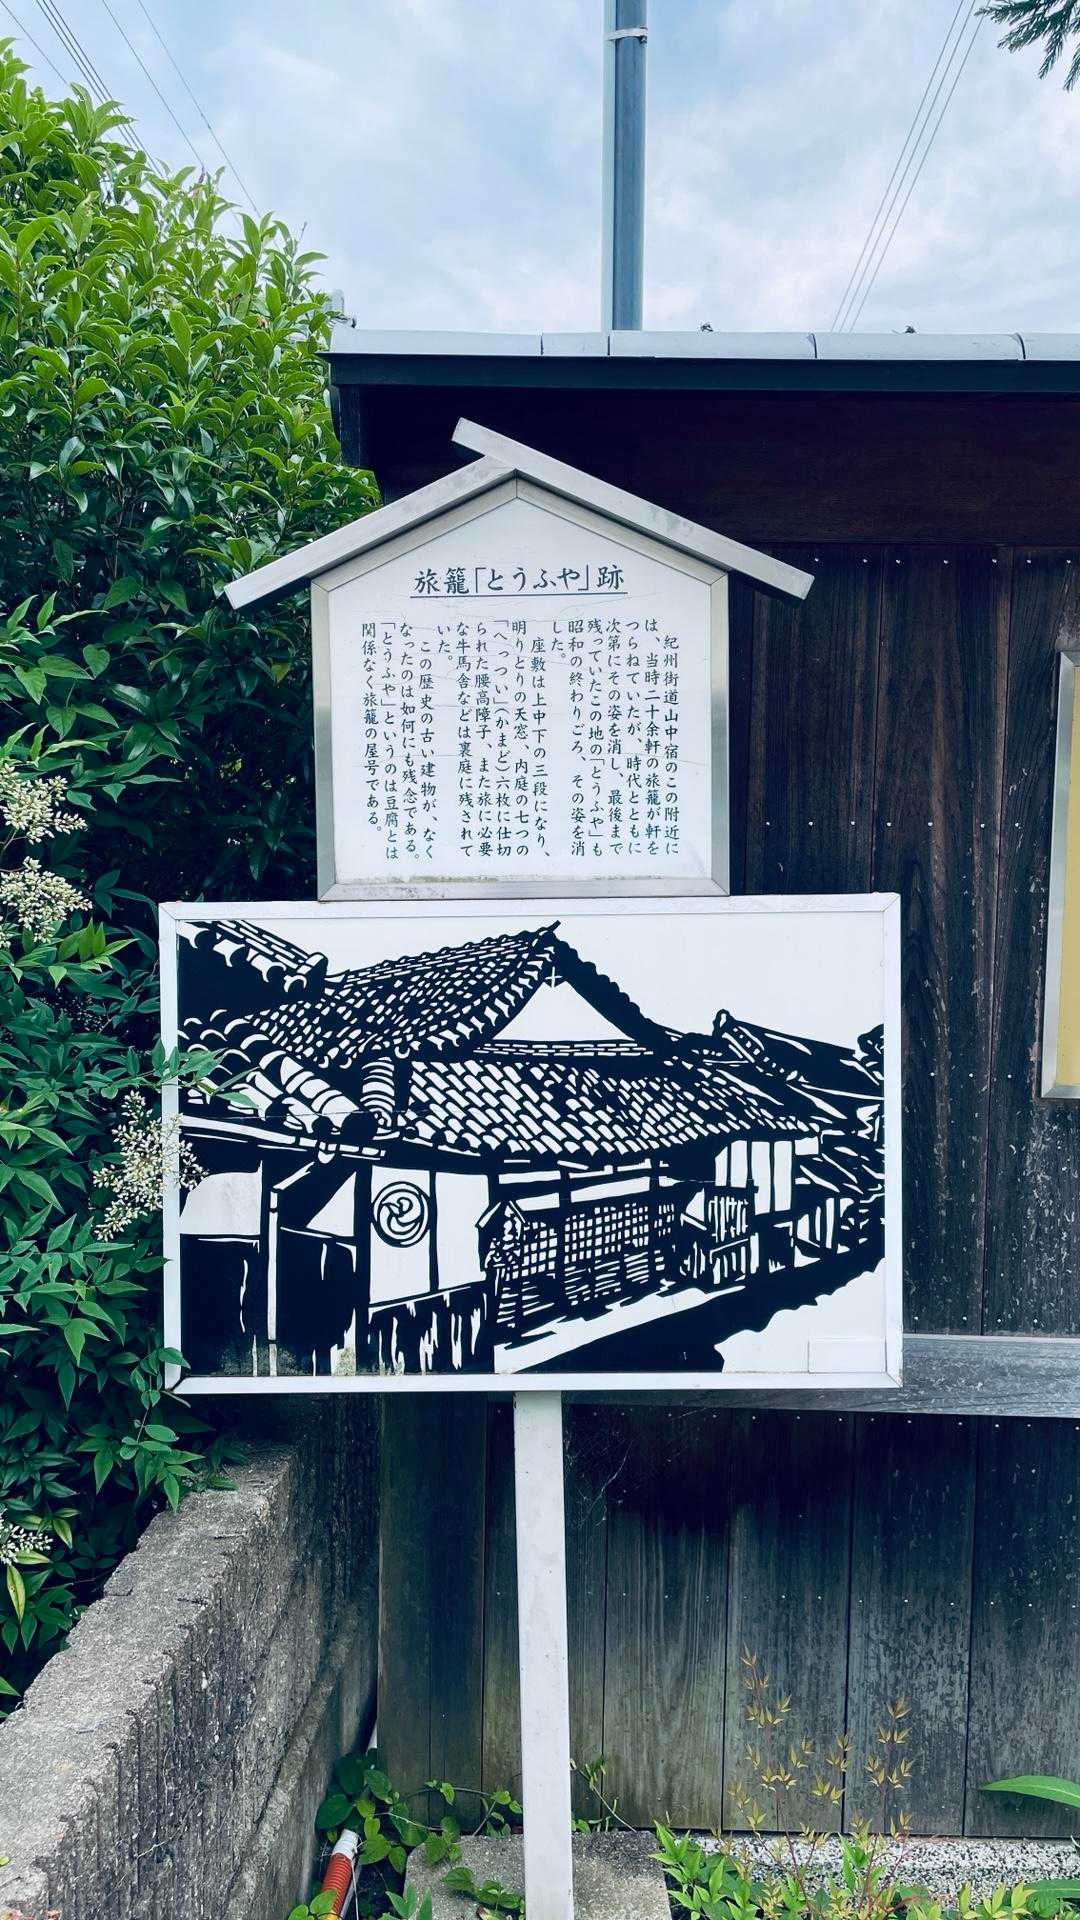 旅籠「とうふや」跡
紀州街道山中宿のこの附近に
は、当時二十余軒の旅籠が軒を
つらねていたが、時代とともに
次第にその姿を消し、最後まで
残っていたこの地の「とうふや」も
昭和の終わりごろ、その姿を消
した。
座敷は上中下の三段になり、
明りとりの天窓、内庭の七つの
「へっつい」(かまど)六枚に仕切
られた腰高障子、また旅に必要
な牛馬舎などは裏庭に残されて
いた。
この歴史の古い建物が、なく
なったのは如何にも残念である。
「とうふや」というのは豆腐とは
関係なく旅籠の屋号である。